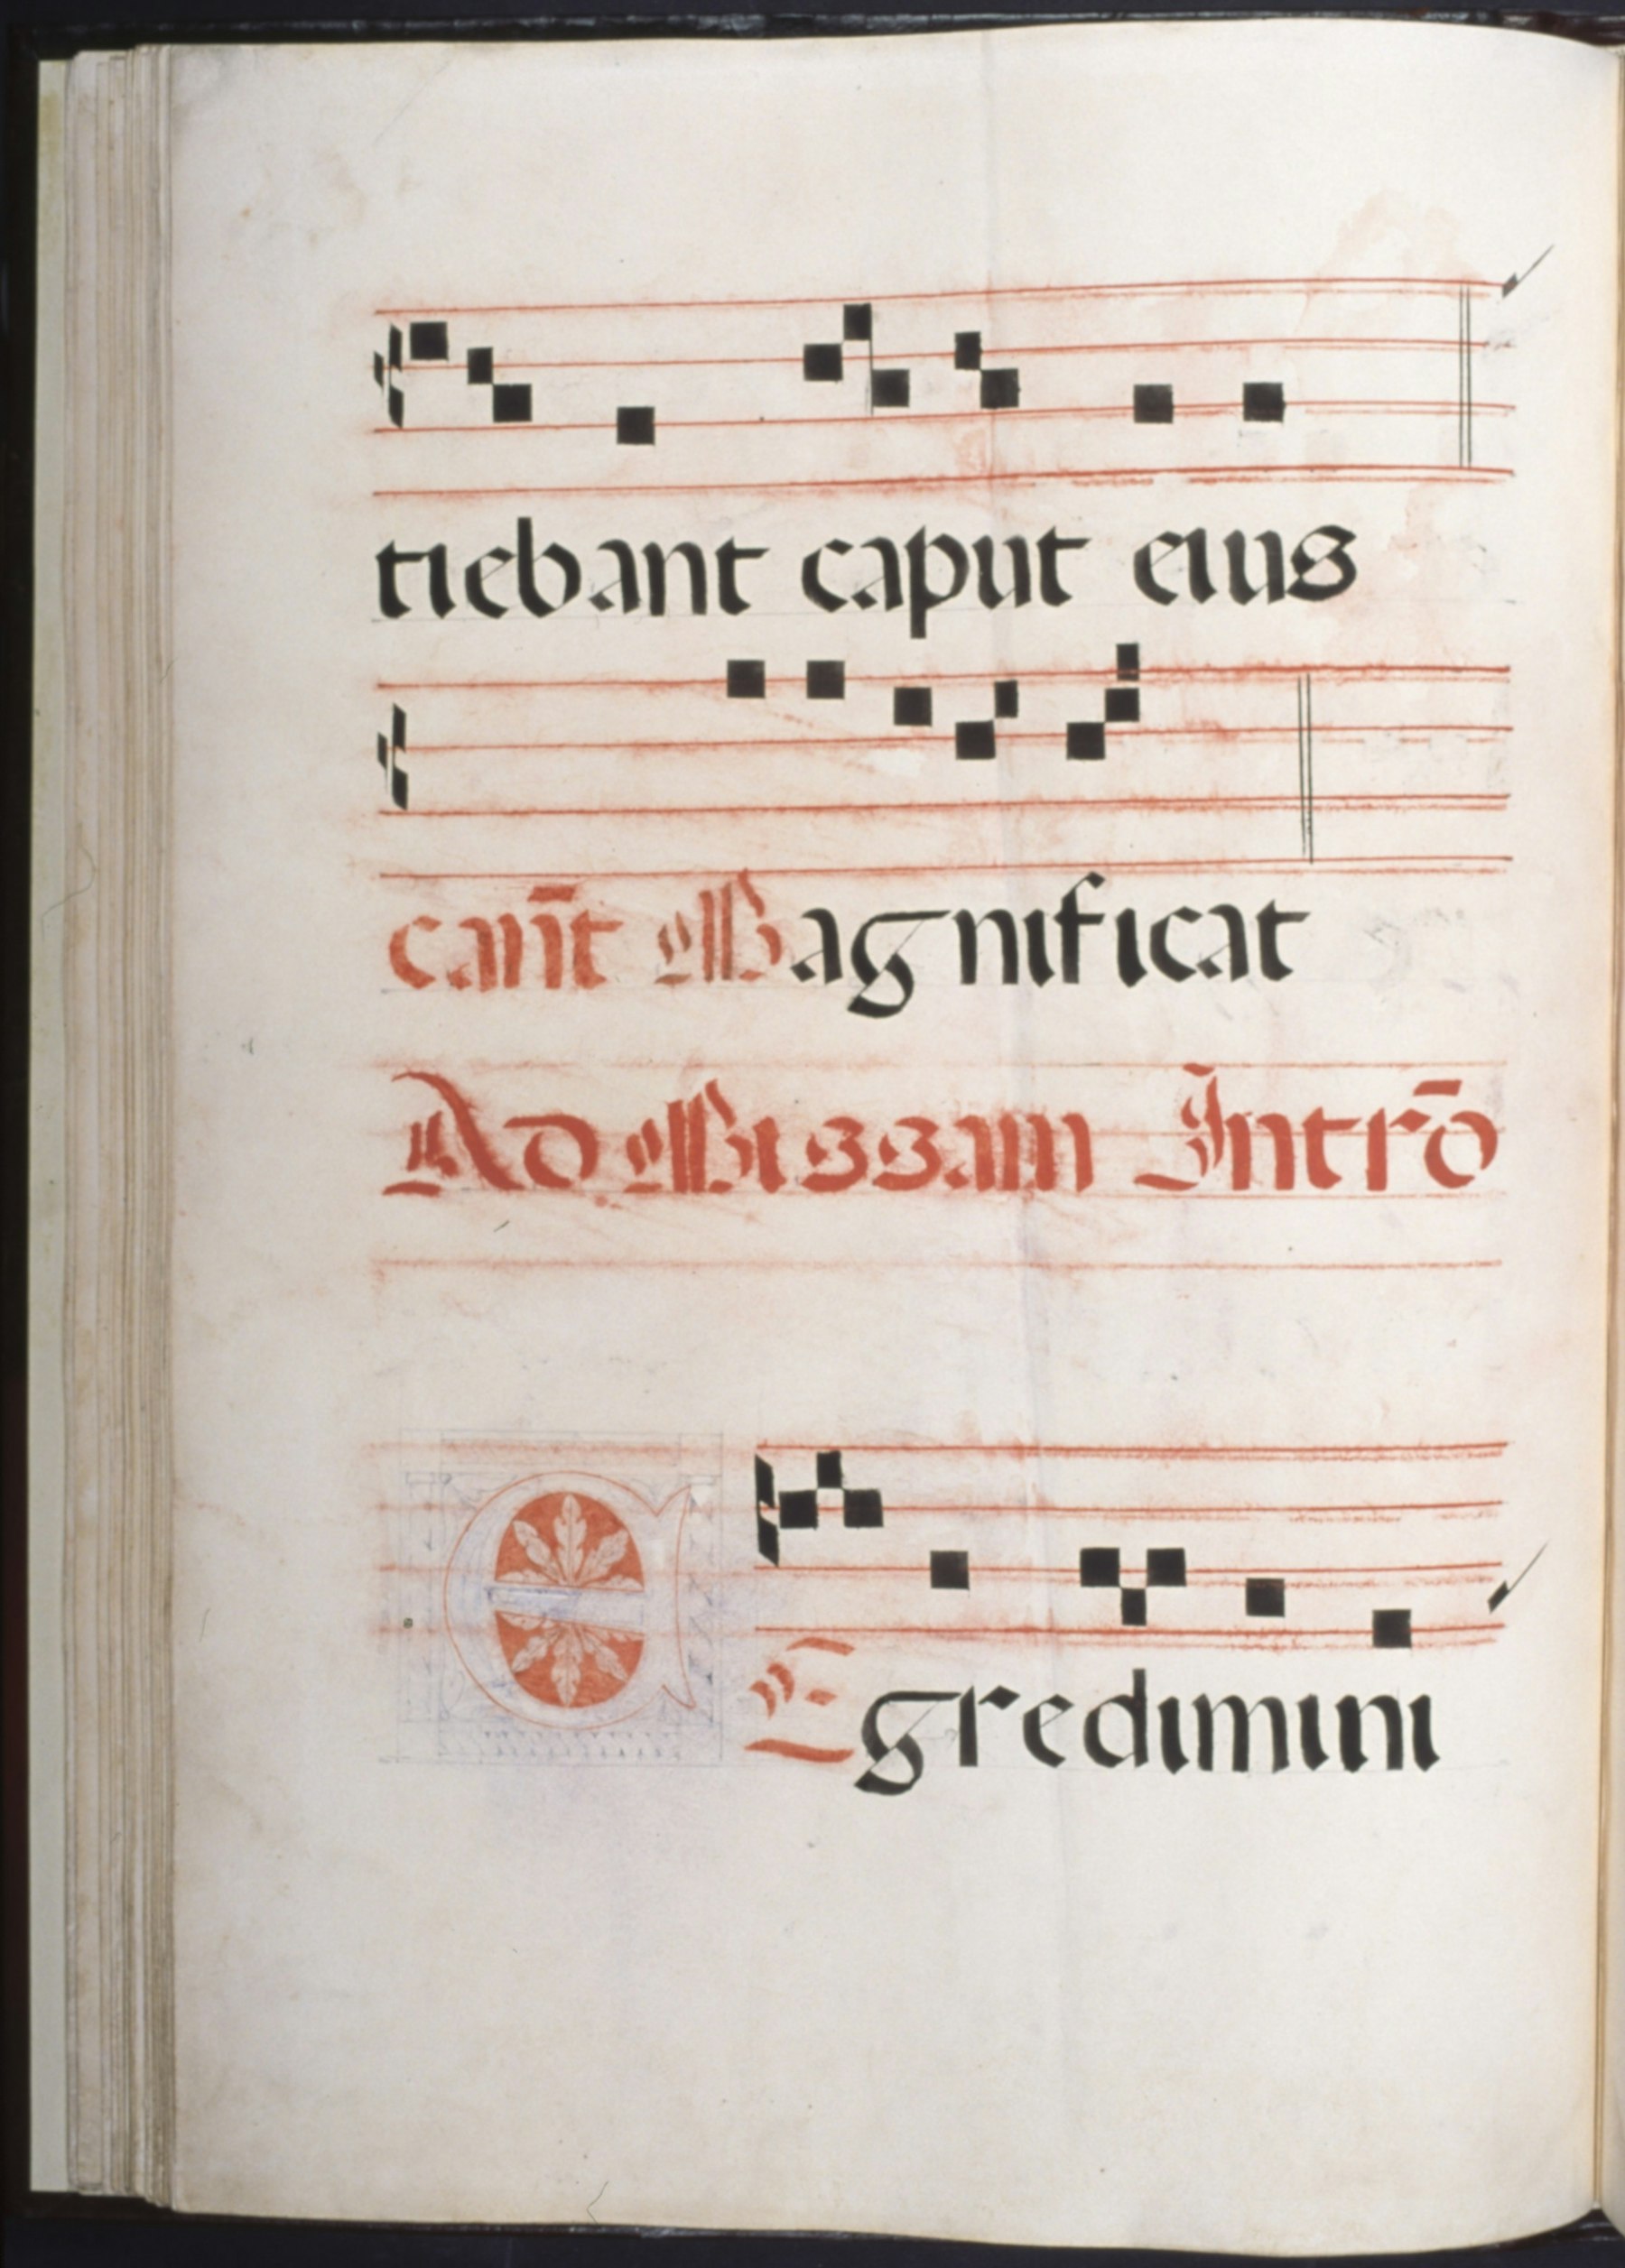 tiebant caput eius
canĩt Magnificat
Ad Missam Intrō
Egredimini